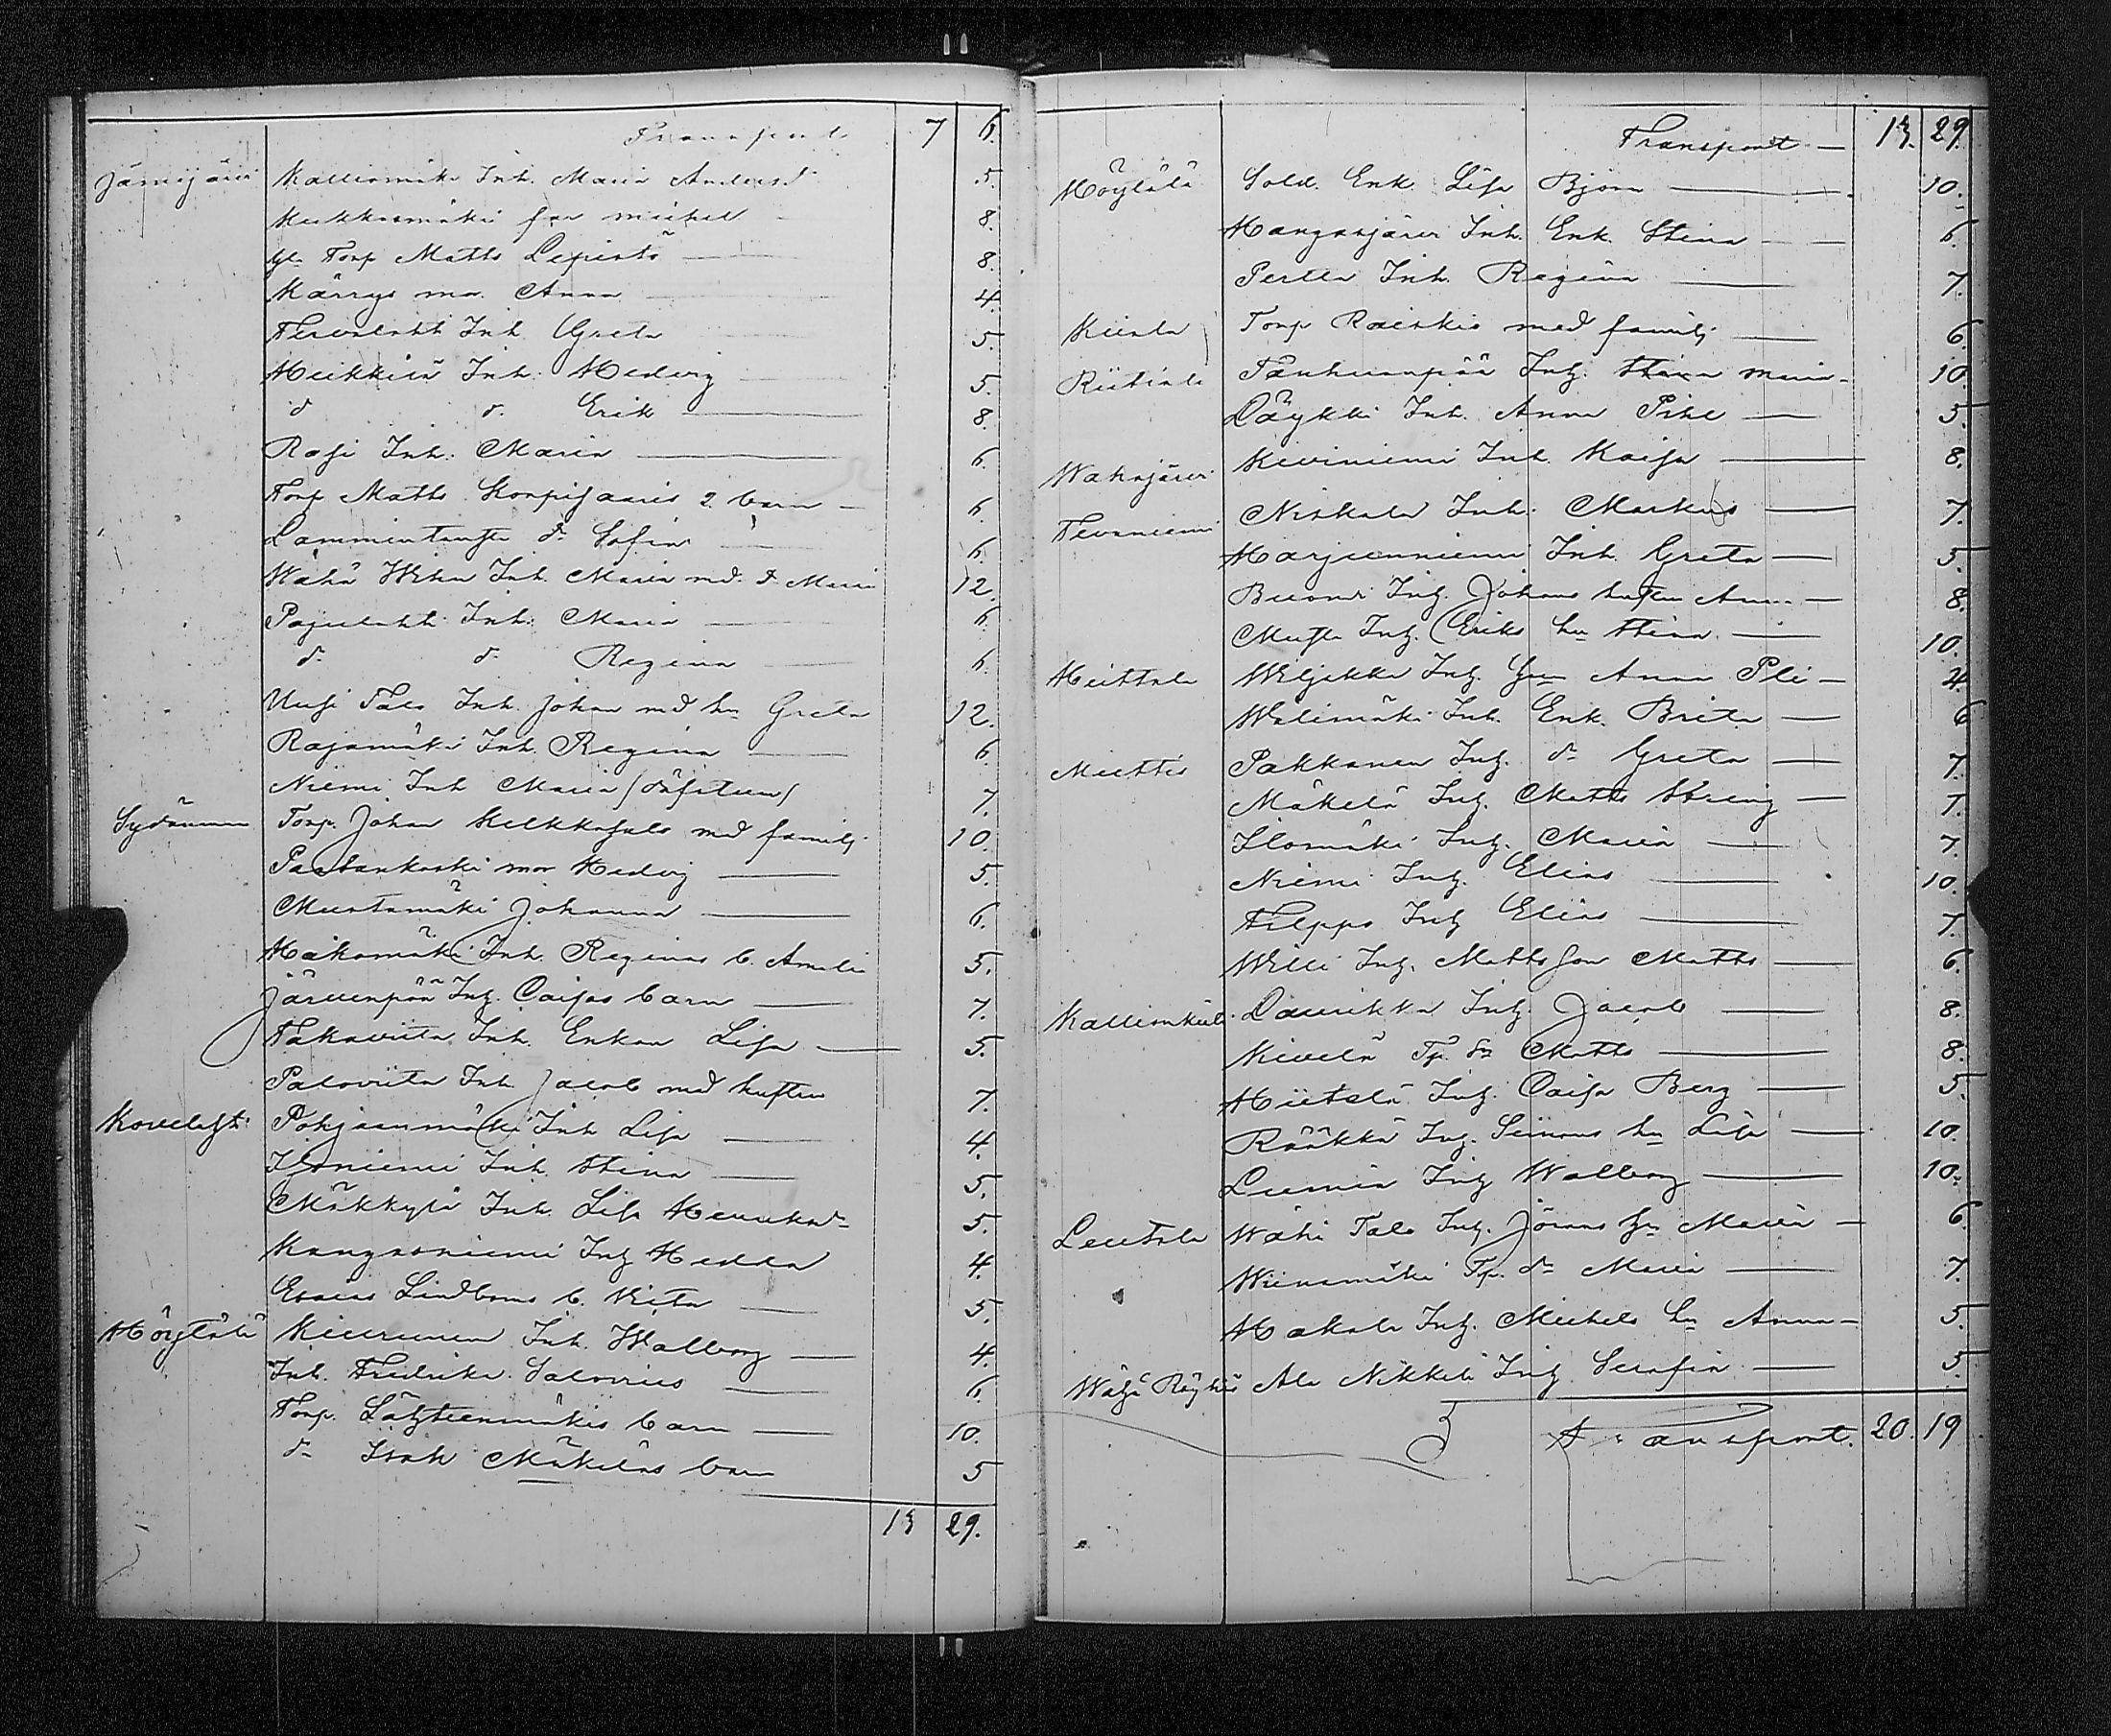 Transport 7 6.
Jämijärvi Kalliomäki Inh. Maria Andersd. 5.
Kukkosmäki son Michel 8.
gl. Torp Matts Lepistö 8.
Kärrys mor. Anna 4.
Tervalahti Inh. Greta 5.
Heikkilä Inh. Hedvig 5.
d d. Erik 8.
Rasi Inh. Maria 6.
Torp Matts Korpisaaris 2 barn 6.
Lammintausta d:r Sofia 6.
Wähä Wiha Inh. Maria md. d Maria 12.
Pajulahti Inh. Maria 6.
d:o d:o Regina 6.
Uusi Talo Inh. Johan md hu Greta 12.
Rajamäki Inh. Regina 6.
Niemi Inh Maria 7.
Sydänmaa Torp. Johan md familj 10.
Paatankoski mor Hedvig 5.
Mustamäki Johanna 6.
Hakamäki Inh. Reginas b. Amalia 5.
Järvenpää Inh. Caisas barn 7.
Takaviita Inh. Enkan Lisa 5.
Paloviita Inh. Jacob md hustru 7.
Kovelaht. Pohjanmäki Inh Lisa 4.
Isoniemi Inh. Stina 5.
Mäkkylä Inh. Lisa Henriksd:r 5.
Kangasniemi Inh Hedda 4.
Esaias Lindboms b. Vita 5.
Höytölä Kiurunen Inh. Walborg 4.
Inh. Fredrika Salovius 6.
Torp. Lähteenmäkis barn 10.
d:o Isak Mäkeläs barn 5
13 29.
Transport 13. 29
Höytölä Sold. Enk. Lisa Björn 10.
Hangasjärvi Inh. Enk. Stina 6.
Perttu Inh. Regina 7.
Torp Raiskio med familj 6.
Riitiala Tanhuanpää Inh. Stina Maria 10.
Löykki Inh. Anna Pihl 5.
Wahojärvi Kiviniemi Inh. Kaisa 8.
Tevaniemi Niskala Inh. Markus 7.
Harjunniemi Inh. Greta 5.
Inh. Johans hustru Anna 8.
Musta Inh. Eriks hu Stina 10.
Heittola Wiljakka Inh. Anna 4.
Walimäki Inh. Enk. Brita 6
Miettis Pakkanen Inh. d:o Greta 7.
Mäkelä Inh. Matts Streng 7.
Ilomäki Inh. Maria 7.
Niemi Inh. Elias 10.
Filppo Inh Elias 7.
Willi Inh. Matts son Matts 6.
Kallionkieli Laurikka Inh. Jacob 8.
Kivelä Tp. Matts 8.
Hietala Inh. Caisa Berg 5.
Rääkkä Inh. Simons hu Lisa 10.
Lumia Inh Walborg 10.
Leutola Wähä Talo Inh. Jörans hu Maria 6.
Wiinamäki Tp. d:o Maria 7.
Hakala Inh. Michels hu Anna 5.
Wähä Röyhiö Ala Nikkilä Inh. Serafia 5.
Transport. 20. 19